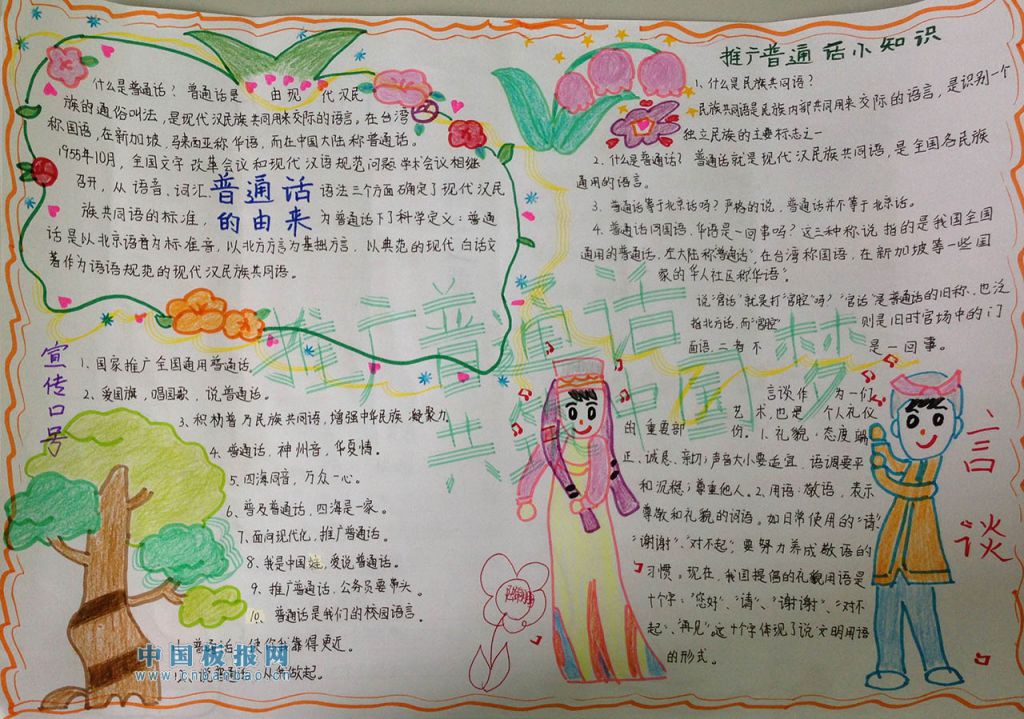 什么是普通话？普通话是 由现 代汉民
族的通俗叫法，是现代汉民族共同用来交际的语言。在台湾
称国语，在新加坡、马来西亚称华语，而在中国大陆称普通话。
1955年10月，全国文字改革会议和现代汉语规范问题学术会议相继
召开，从语音、词汇、语法三个方面确定了现代汉民
族共同语的标准，为普通话下了科学定义：普通
话是以北京语音为标准音，以北方方言为基础方言，以典范的现代白话文
著作为语语规范的现代汉民族共同语。
普通话
的由来
推广普通话小知识
1、什么是民族共同语？
民族共同语是民族内部共同用来交际的语言，是识别一个
独立民族的主要标志之一
2、什么是普通话？普通话就是现代汉民族共同语，是全国各民族
通用的语言。
3、普通话等于北京话吗？严格的说，普通话并不等于北京话。
4、普通话同国语、华语是一回事吗？这三种称说指的是我国全国
通用的普通话，在大陆称“普通话”，在台湾称国语，在新加坡等一些国
家的华人社区称华语。
说“官话”就是打“官腔”吗？“官话”是普通话的旧称，也泛
指北方话，而“官腔” 则是旧时官场中的门
面语，二者不 是一回事。
推广普通话
共筑中国梦
宣传口号
1、国家推广全国通用普通话。
2、爱国旗，唱国歌，说普通话。
3、积极普及民族共同语，增强中华民族凝聚力
4、普通话，神州音，华夏情。
5、四海同音，万众一心。
6、普及普通话，四海是一家。
7、面向现代化，推广普通话。
8、我是中国娃，爱说普通话。
9、推广普通话，公务员要带头。
10、普通话是我们的校园语言。
普通话，使你我靠得更近。
说普通话，从我做起。
言谈
言谈作 为一们
艺术，也是 个人礼仪
的 重要部 份。1、礼貌：态度端
正、诚恳、亲切；声音大小要适宜，语调要平
和沉稳；尊重他人。2、用语：敬语，表示
尊敬和礼貌的词语。如日常使用的“请”
“谢谢”、“对不起”，要努力养成敬语的
习惯。现在，我国提倡的礼貌用语是
十个字：“您好”、“请”、“谢谢”、“对不
起”、“再见”。这十个字体现了说文明用语
的形式。
中国板报网
www.cnbanbao.cn